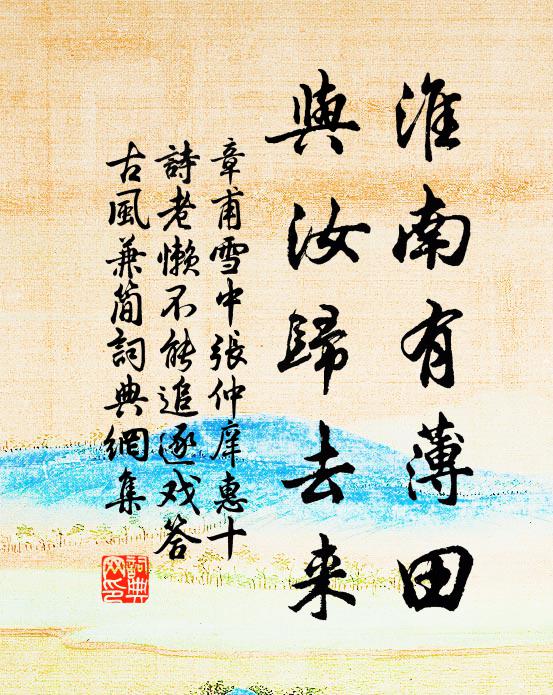 淮南有薄田
與汝歸去来
章甫雪中張仲庠惠十
詩老懶不能追逐戏答
古風兼簡詞典網集
詞典
网印